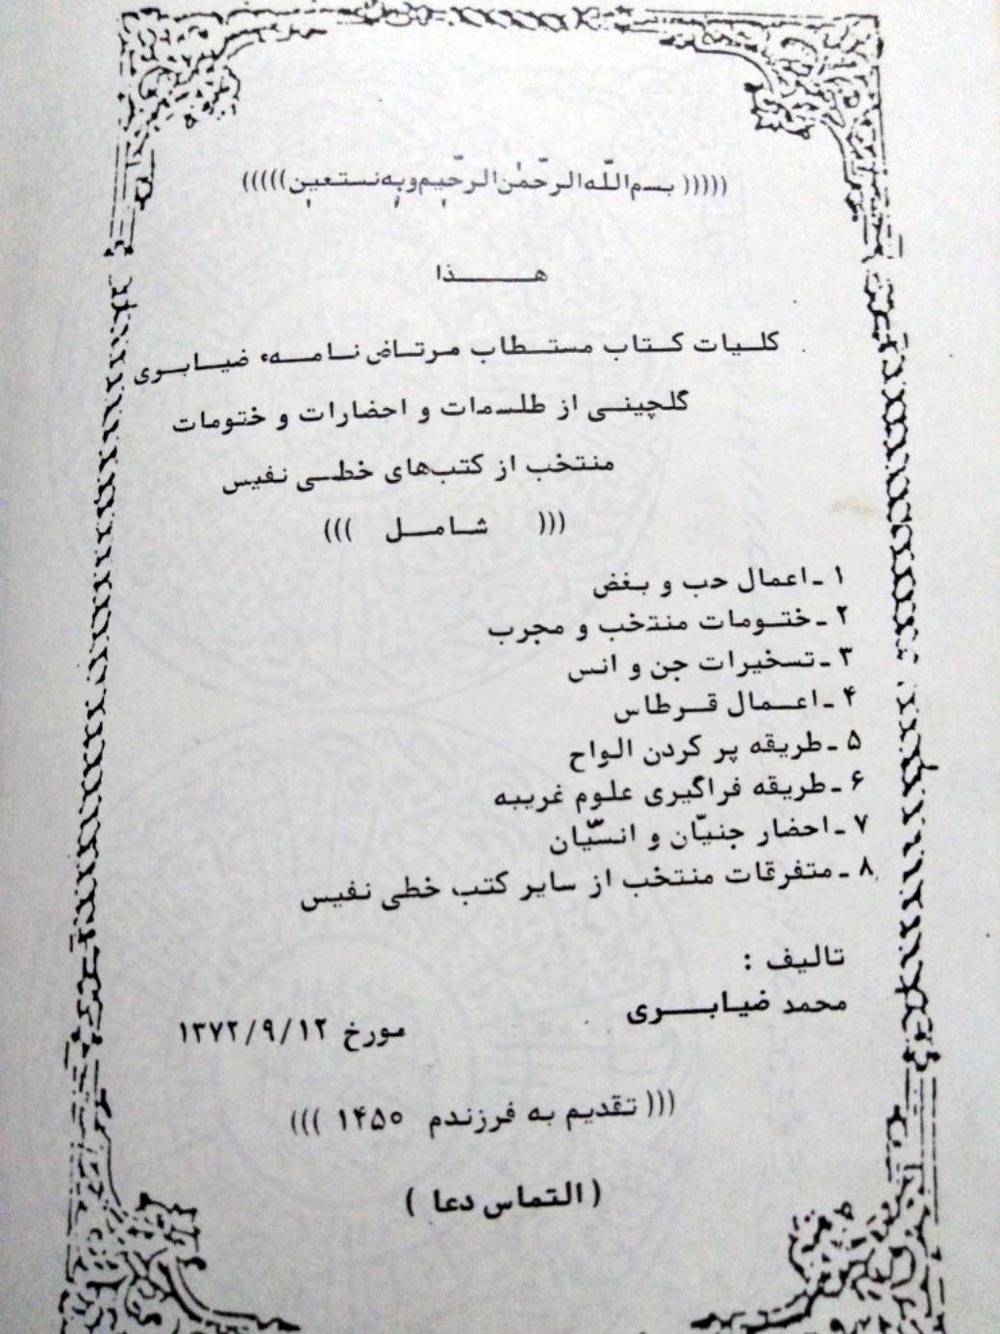 ((((( بسم اللّه الرحّمٰن الرحّیم وبه نستعین )))))
هـــــذا
کلـیات کـتاب مستـطاب مرتـاض نـامـهء ضیـابـری
گلچینـی از طلسمات و احضارات و ختومات
منتخب از کتب‌های خطـی نفیس
((( شـامـل )))
۱ ـ اعمال حب و بغض
۲ ـ ختـومات منتخب و مجرب
۳ ـ تسخیرات جن و انس
۴ ـ اعـمال قـرطاس
۵ ـ طریقه پر کردن الواح
۶ ـ طریقه فراگیری علوم غریبه
۷ ـ احضار جنیّان و انسیّان
۸ ـ متفرقات منتخب از سایر کتب خطی نفیس
تالیف :
محمد ضیابـــری
مورخ ۱۳۷۲/۹/۱۲
((( تقدیم به فرزندم ۱۴۵۰ )))
( التماس دعا )